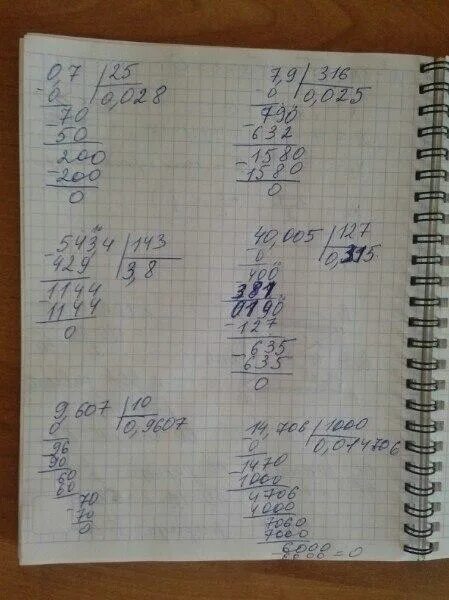 0,7 | 25
0 | 0,028
70
50
200
-200
0
7,9 | 316
-0 | 0,025
790
-632
-1580
-1580
0
-543,4 | 143
429 | 3,8
1144
-1144
0
40,005 | 127
0 | 0,315
400
381
0190
-127
-635
635
0
9,607 | 10
0 | 0,9607
96
90
60
60
70
-70
0
14,706 | 1000
0 | 0,014706
-1470
1000
4706
4000
7060
7000
6000
6000 = 0